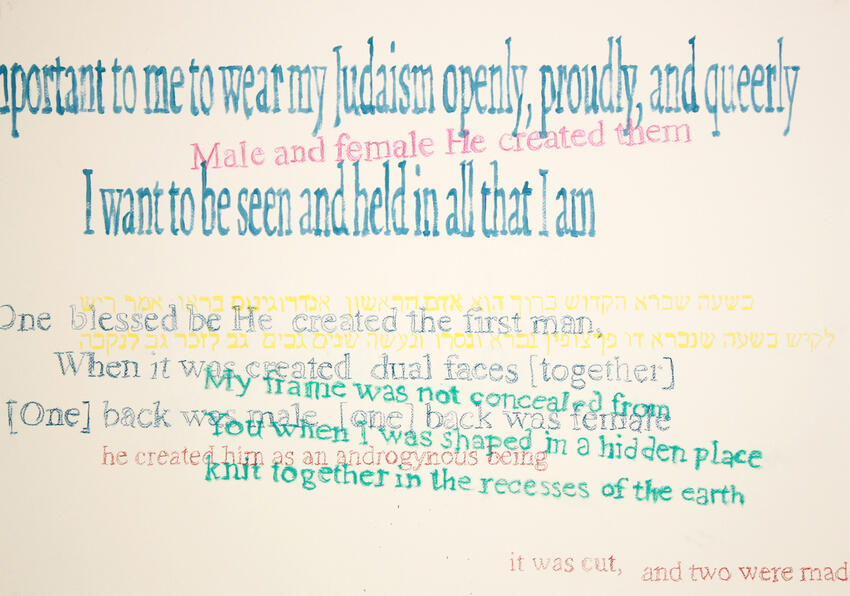 mportant to me to wear my Judaism openly, proudly, and queerly
Male and female He created them
I want to be seen and held in all that I am
בשעה שברא הקדוש ברוך הוא אדם הראשון אנדרוגינוס בראו אמר ריש
One blessed be He created the first man,
לקיש בשעה שנברא דו פרצופין נברא ונסרו ונעשה שנים גבים גב לזכר גב לנקבה
When it was created dual faces [together]
My frame was not concealed from
[One] back was male, [one] back was female
You when I was shaped in a hidden place
he created him as an androgynous being
knit together in the recesses of the earth
it was cut, and two were mad